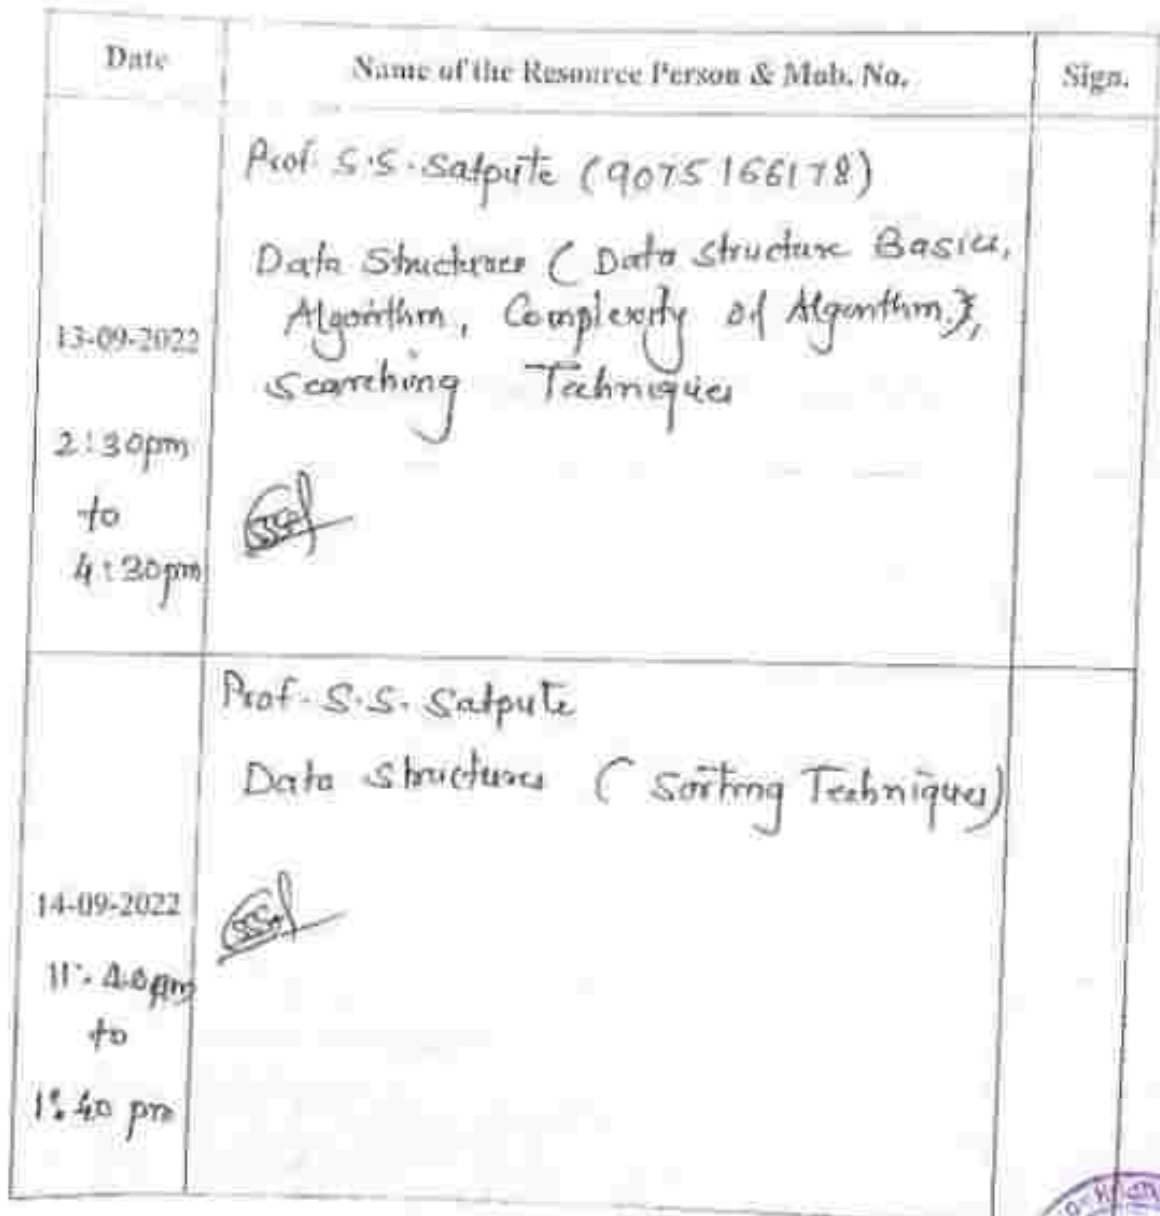 Date
Name of the Resource Person & Mob. No.
Sign.
13-09-2022
2:30pm
to
4:30pm
Prof. S.S. Satpute (9075166178)
Data Structures ( Data structure Basics,
Algorithm, Complexity of Algorithm),
Searching Techniques
14-09-2022
11:40
to
1:40 pm
Prof. S.S. Satpute
Data Structures ( Sorting Techniques)